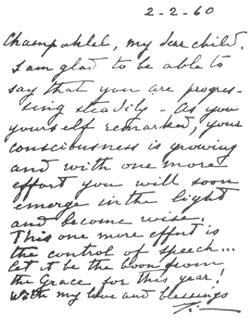 2-2-60
Champaklal, my dear child.
I am glad to be able to
say that you are progres-
sing steadily - As you
yourself remarked, your
consciousness is growing
and with one more
effort you will soon
emerge in the light
and become wise.
This one more effort is
the control of speech...
let it be the boon from
the Grace for this year!
With my love and blessings